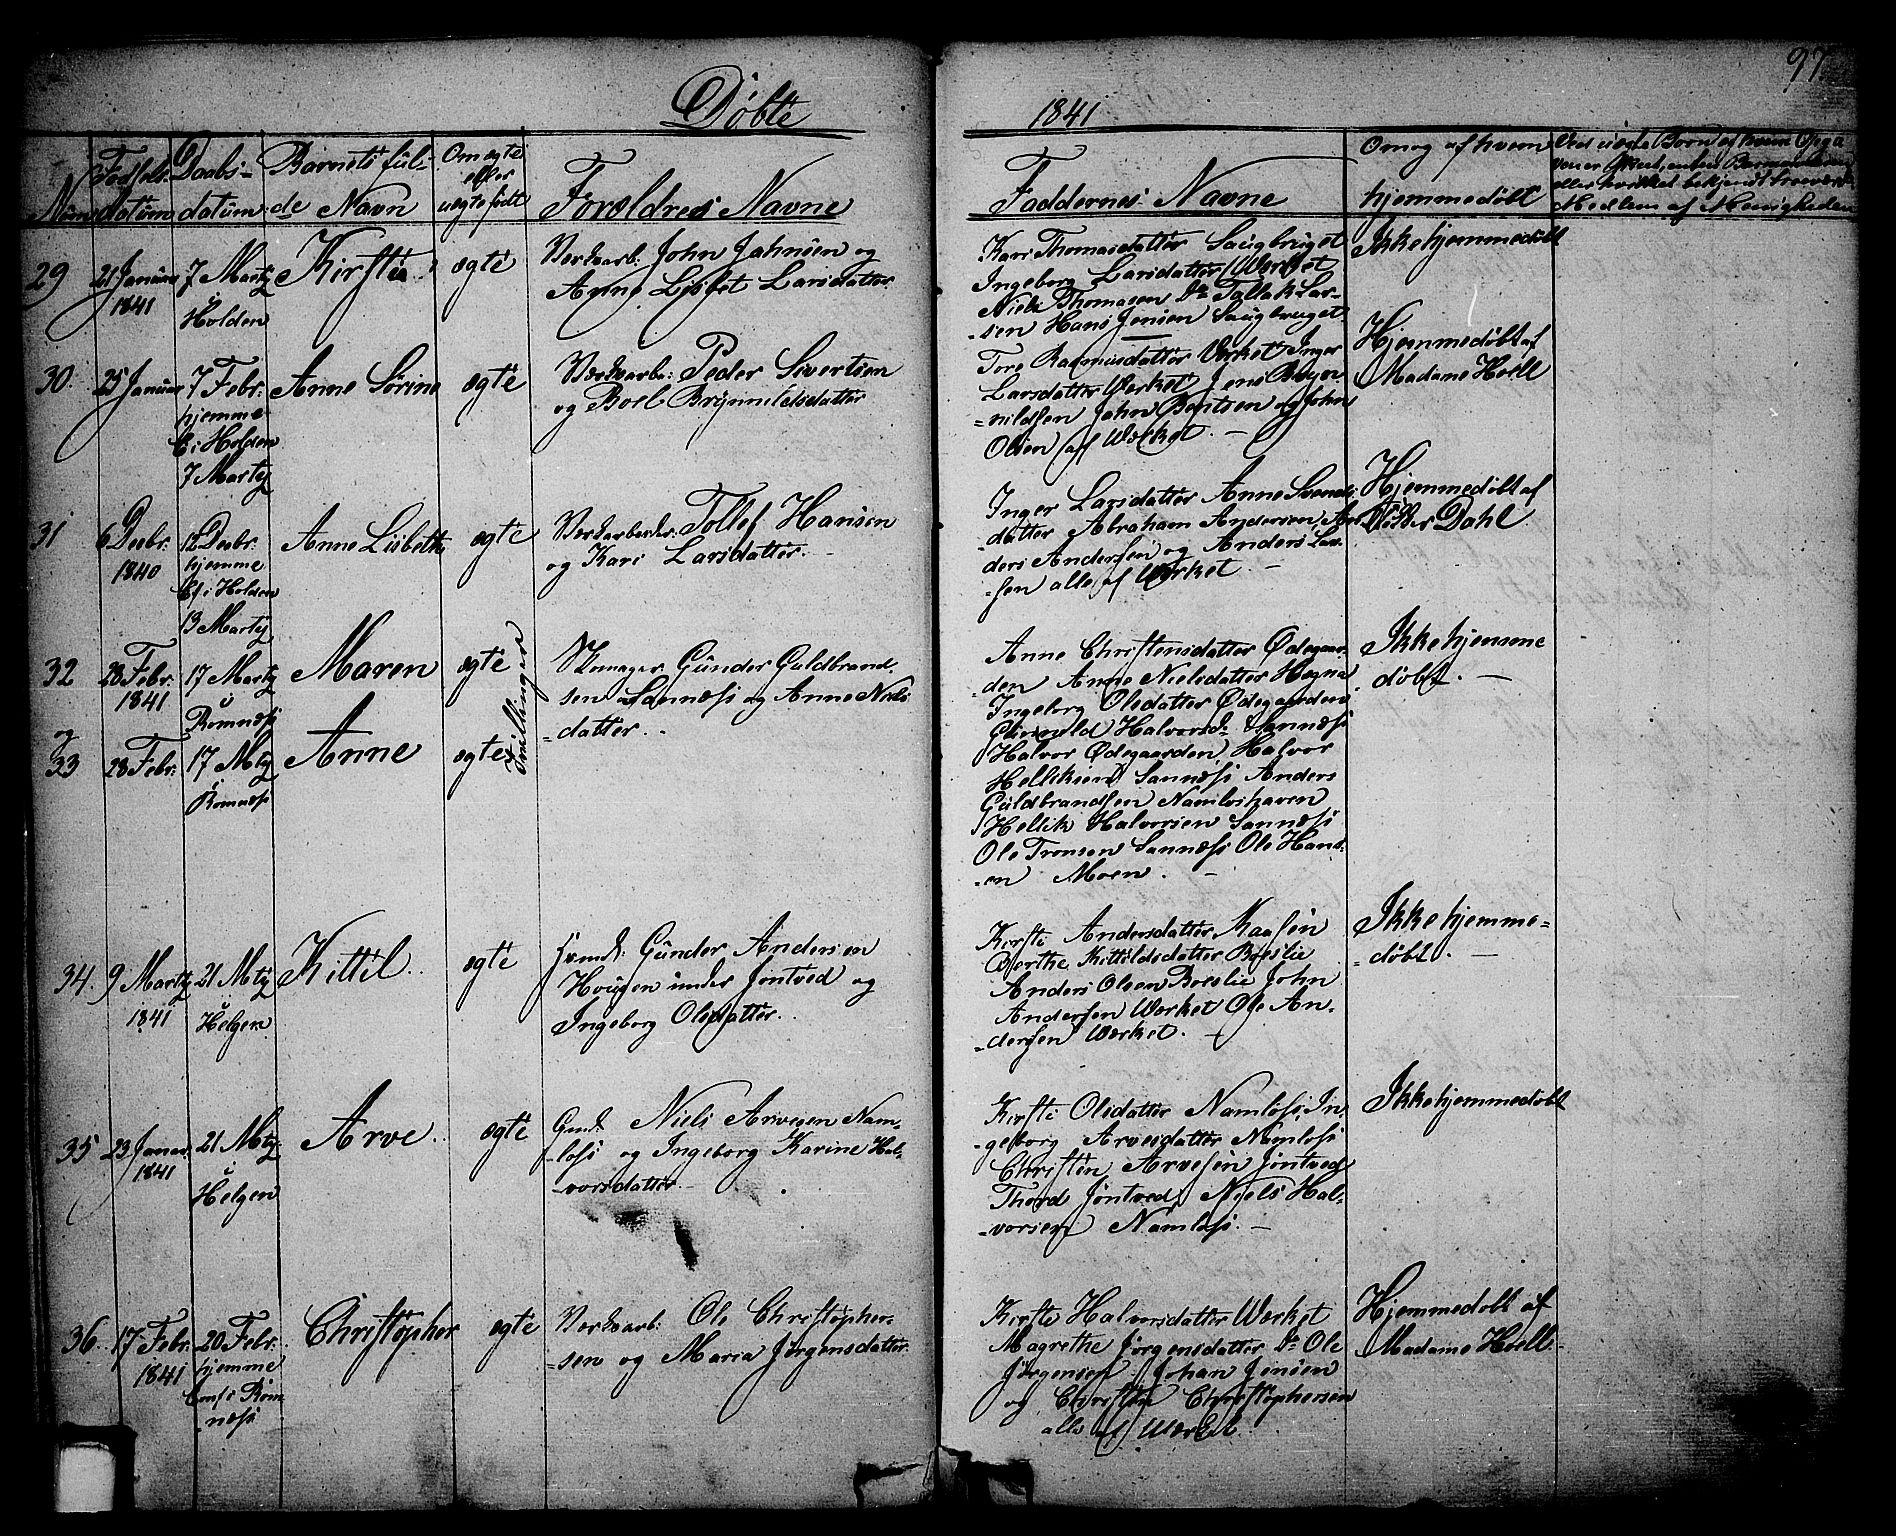 97
Døbte
1841
Num
Fødsels-
datum
Daabs-
datum
Barnets ful-
de Navn
Om ægte
eller
uægte født
Forældres Navne
Faddernes Navne
Om og af hvem
hjemmedøbt
Medlem af Menigheden
29
21 Januar
1841
7 Martz
i
Holden
Kirstie
ægte
Verksarb: John Jahnsen og
Anne Lisbet Larsdatter
Kari Thomasdatter Saugbruget
Ingeborg Larsdatter Værket
Niels Thomasen Do Tallak Lar-
sen Hans Jensen Saugbruget
Ikke hjemmedøbt
30.
25 Januar
7 Febr:
hjemme
C: i Holden
7 Martz
Anne Sørine
ægte
Verksarb: Peder Sivertsen
og Boel Brynnildsdatter
Tore Rasmusdatter Værket Inger
Larsdatter Værket Jens Bryn-
nildsen Jahn Bentsen og John
Olsen af Værket. -
Hjemmedøbt af
Madame Hoell
31
6 Decbr:
1840
12 Decbr:
hjemme
Cf: i Holden
13 Martz
Anne Lisbeth
ægte
Verksarbeider: Tollef Hansen
og Kari Larsdatter. -
Inger Larsdatter Anne Svends-
datter Abraham Andersen, An-
ders Andersen og Anders Lar-
sen alle af Værket. -
Hjemmedøbt af
Dahl
32
28 Febr.
1841
17 Martz
i
Romnæs
Maren
ægte
Tvillinger
Gunder Guldbrand-
sen Sannæs og Anne Niels
datter.
Anne Christensdatter Ødegaar-
den Anne Nielsdatter Hegna
Ingeborg Olsdatter Ødegaarden
Gunuld Halvorsd: Sannæs
Halvor Ødegaarden, Halvor
Helliksen Sannæs Anders
Guldbrandsen Namløshaven
Hellik Halvorsen Sannæs
Ole Tronsen Sannæs Ole Hans-
en Moen. -
Ikke hjemme
døbt. -
og
33
28 Febr:
17 Mtz
i
Romnæs
Anne
ægte
34.
9 Martz
1841
21 Mtz
i
Helgen
Kittil
ægte
Huusmd: Gunder Andersen
Hougen under Jøntved og
Ingeborg Olsdatter.
Kirsti Andersdatter Maasen
Berthe Kittilsdatter Breslie
Anders Olsen Breslie John
Andersen Værket Ole An-
dersen Værket. -
Ikke hjemme-
døbt. -
35
23 Januar
1841
21 Mtz
i
Helgen
Arve
ægte
Gmd: Niels Arvesen Nam-
løs og Ingeborg Karine Hal-
vorsdatter
Kirsti Olsdatter Namløs, In-
geborg Arvesdatter Namløs
Christen Arvesen Jøntved
Thord Jøntved, Niels Hal-
vorsen Namløs. -
Ikke hjemmedøbt
36.
17 Febr.
1841
20 Febr:
hjemme
Conf: i Rom-
næs
Christopher
ægte
Verksarb: Ole Christopher-
sen og Maria Jørgensdatter
Kirste Halvorsdatter Værket
Magrethe Jørgensdatter Do Ole
Jørgensen Johan Jensen
og Christen Christophersen
alle af Værket
Hjemmedøbt af
Madame Hoell.